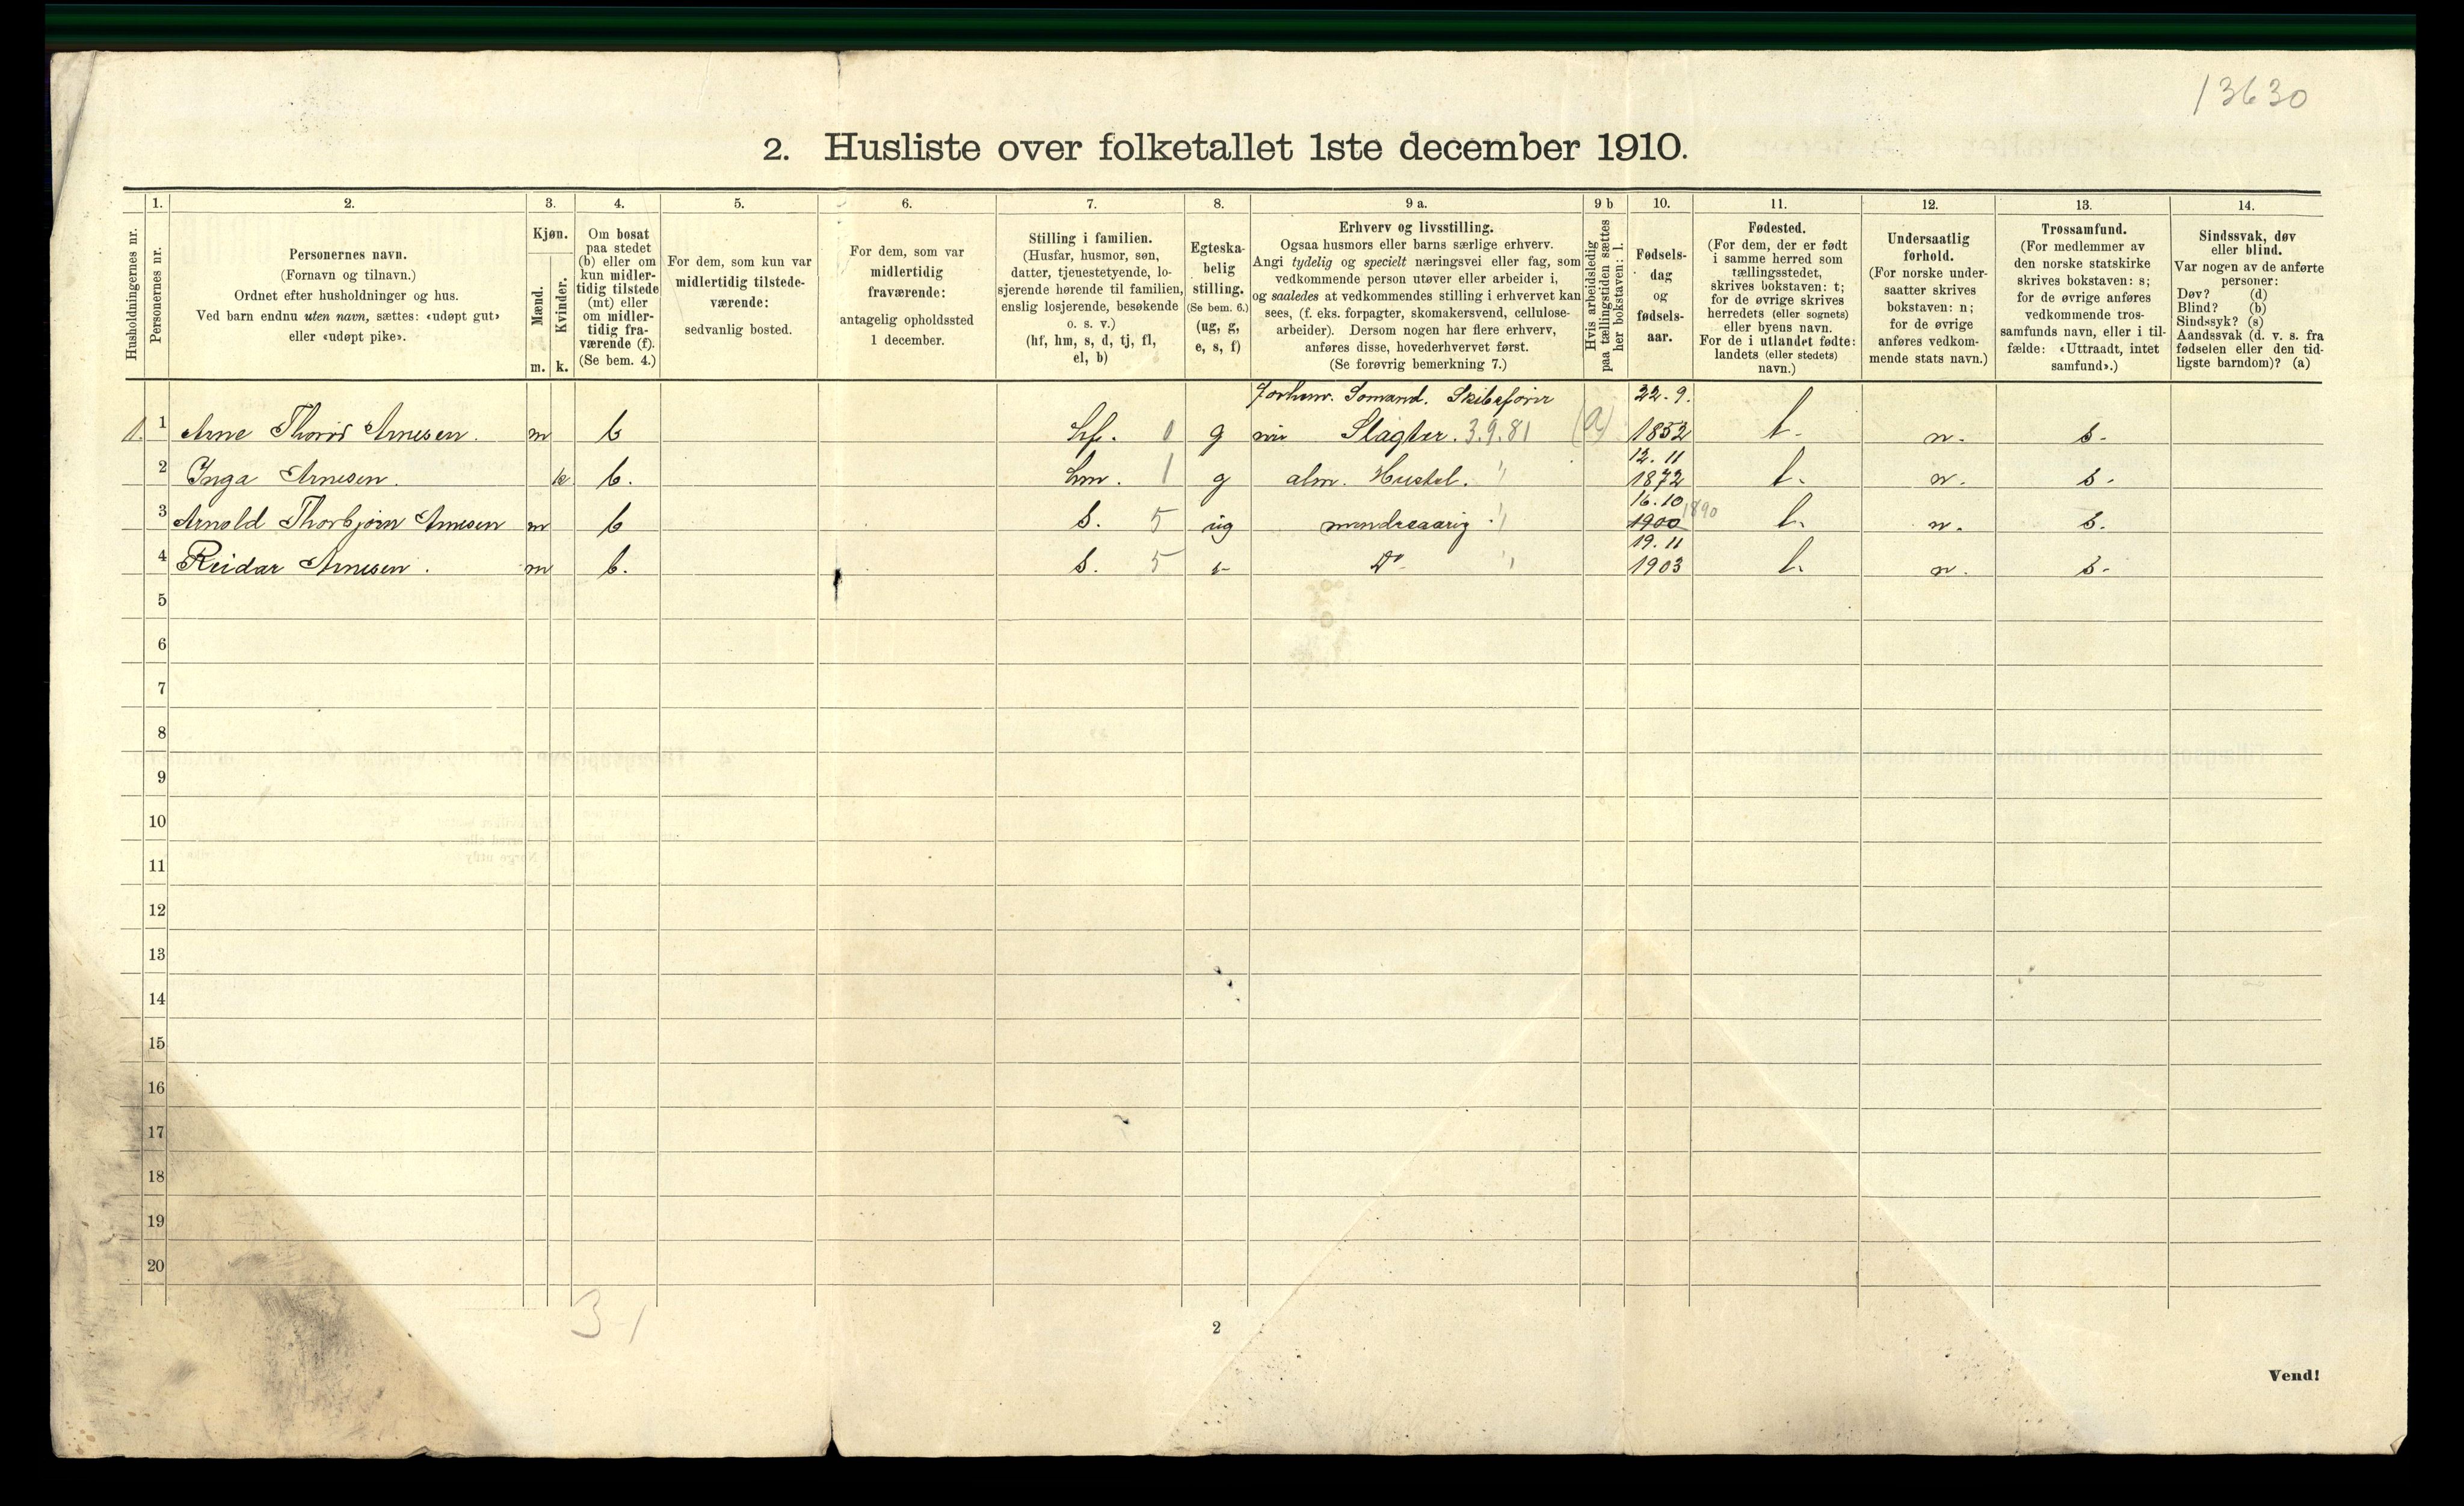 13630
2. Husliste over folketallet 1ste december 1910.
Husholdningernes nr.
1.
Personernes nr.
2.
Personernes navn.
(Fornavn og tilnavn.)
Ordnet efter husholdninger og hus.
Ved barn endnu uten navn, sættes: «udøpt gut»
eller «udøpt pike».
3.
Kjøn.
Mænd.
Kvinder.
m. k.
4.
Om bosat
paa stedet
(b) eller om
kun midler-
tidig tilstede
(mt) eller
om midler-
tidig fra-
værende (f).
(Se bem. 4.)
5.
For dem, som kun var
midlertidig tilstede-
værende:
sedvanlig bosted.
6.
For dem, som var
midlertidig
fraværende:
antagelig opholdssted
1 december.
7.
Stilling i familien.
(Husfar, husmor, søn,
datter, tjenestetyende, lo-
sjerende hørende til familien,
enslig losjerende, besøkende
o. s. v.)
(hf, hm, s, d, tj, fl,
el, b)
8.
Egteska-
belig
stilling.
(Se bem. 6.)
(ug, g,
e, s, f)
9 a.
Erhverv og livsstilling.
Ogsaa husmors eller barns særlige erhverv.
Angi tydelig og specielt næringsvei eller fag, som
vedkommende person utøver eller arbeider i,
og saaledes at vedkommendes stilling i erhvervet kan
sees, (f. eks. forpagter, skomakersvend, cellulose-
arbeider). Dersom nogen har flere erhverv,
anføres disse, hovederhvervet først.
(Se forøvrig bemerkning 7.)
9 b
Hvis arbeidsledig
paa tællingstiden sættes
her bokstaven: l.
10.
Fødsels-
dag
og
fødsels-
aar.
11.
Fødested.
(For dem, der er født
i samme herred som
tællingsstedet,
skrives bokstaven: t;
for de øvrige skrives
herredets (eller sognets)
eller byens navn.
For de i utlandet fødte:
landets (eller stedets)
navn.)
12.
Undersaatlig
forhold.
(For norske under-
saatter skrives
bokstaven: n;
for de øvrige
anføres vedkom-
mende stats navn.)
13.
Trossamfund.
(For medlemmer av
den norske statskirke
skrives bokstaven: s;
for de øvrige anføres
vedkommende tros-
samfunds navn, eller i til-
fælde: «Uttraadt, intet
samfund».)
14.
Sindssvak, døv
eller blind.
Var nogen av de anførte
personer:
Døv? (d)
Blind? (b)
Sindssyk? (s)
Aandssvak (d. v. s. fra
fødselen eller den tid-
ligste barndom)? (a)
forhenv. Sømand. Skibsfører 22.9.
1. 1 Arne Arnesen. m b hf. 0 g nu Slagter. 3.9.81 (a) 1852 t. n. s.
12.11
2 Inga Arnesen. k b. hm. 1 g alm. Husstel. " 1872 t. n. s.
16.10
3 Arnold Thorbjørn Arnesen m b s. 5 ug mindreaarig " 1900 1890 t. n. s.
19.11
4 Reidar Arnesen. m b. s. 5 Do " 1903 t. n. s.
5
6
7
8
9
10
11
12
13
14
15
16
17
18
19
20
3-1
2
Vend!